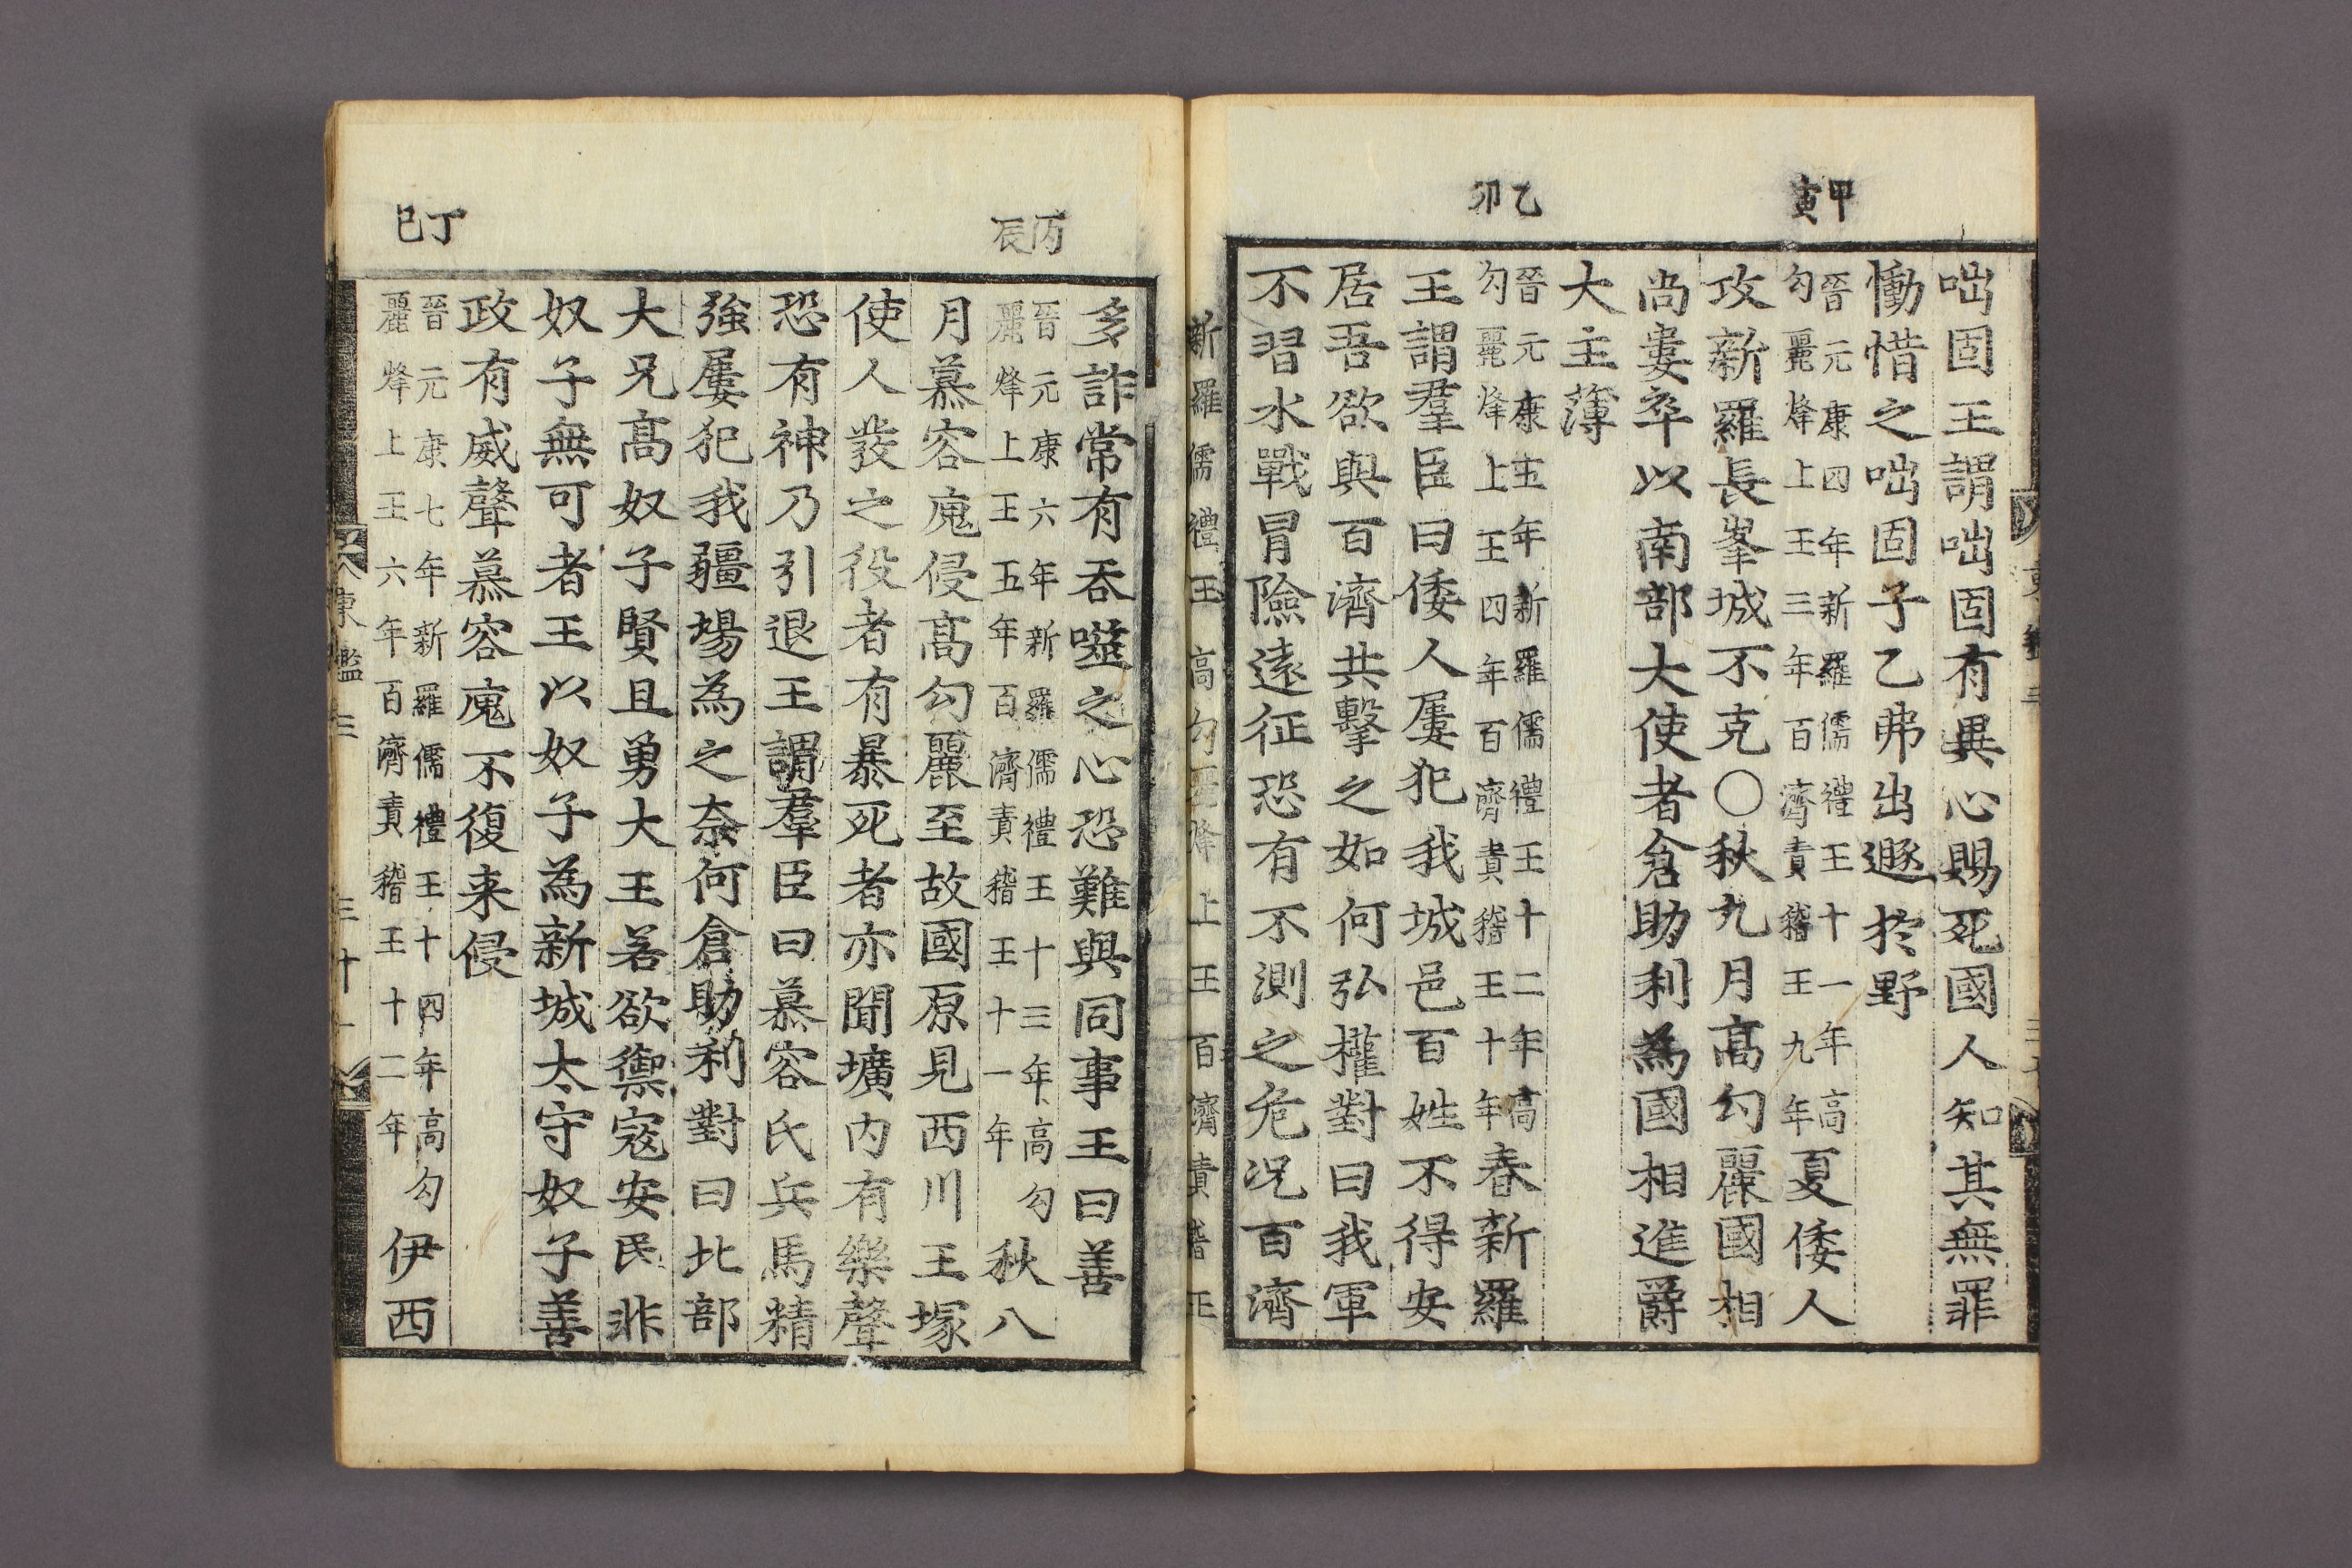 甲寅
乙卯
咄固王謂咄固有異心賜死國人知其無罪
慟惜之咄固子乙弗出遯於野
晉元康四年新羅儒禮王十一年高
勾麗烽上王三年百濟責稽王九年
夏倭人
攻新羅長峯城不克○秋九月高勾麗國相
尚婁卒以南部大使者倉助利爲國相進爵
大主簿
晉元康五年新羅儒禮王十二年高
勾麗烽上王四年百濟責稽王十年
春新羅
王謂羣臣曰倭人屢犯我城邑百姓不得安
居吾欲與百濟共擊之如何弘權對曰我軍
不習水戰冒險遠征恐有不測之危况百濟
新羅儒禮王 高勾麗烽上王 百濟責稽王
丙辰
丁巳
多詐常有吞噬之心恐難與同事王曰善
晉元康六年新羅儒禮王十三年高勾
麗烽上王五年百濟責稽王十一年
秋八
月慕容廆侵高勾麗至故國原見西川王塚
使人發之役者有暴死者亦聞壙内有樂聲
恐有神乃引退王謂羣臣曰慕容氏兵馬精
強屢犯我疆場為之奈何倉助利對曰北部
大兄高奴子賢且勇大王若欲禦寇安民非
奴子無可者王以奴子為新城太守奴子善
政有威聲慕容廆不復来侵
晉元康七年新羅儒禮王十四年高勾
麗烽上王六年百濟責稽王十二年
伊西
東鑑三 三十一